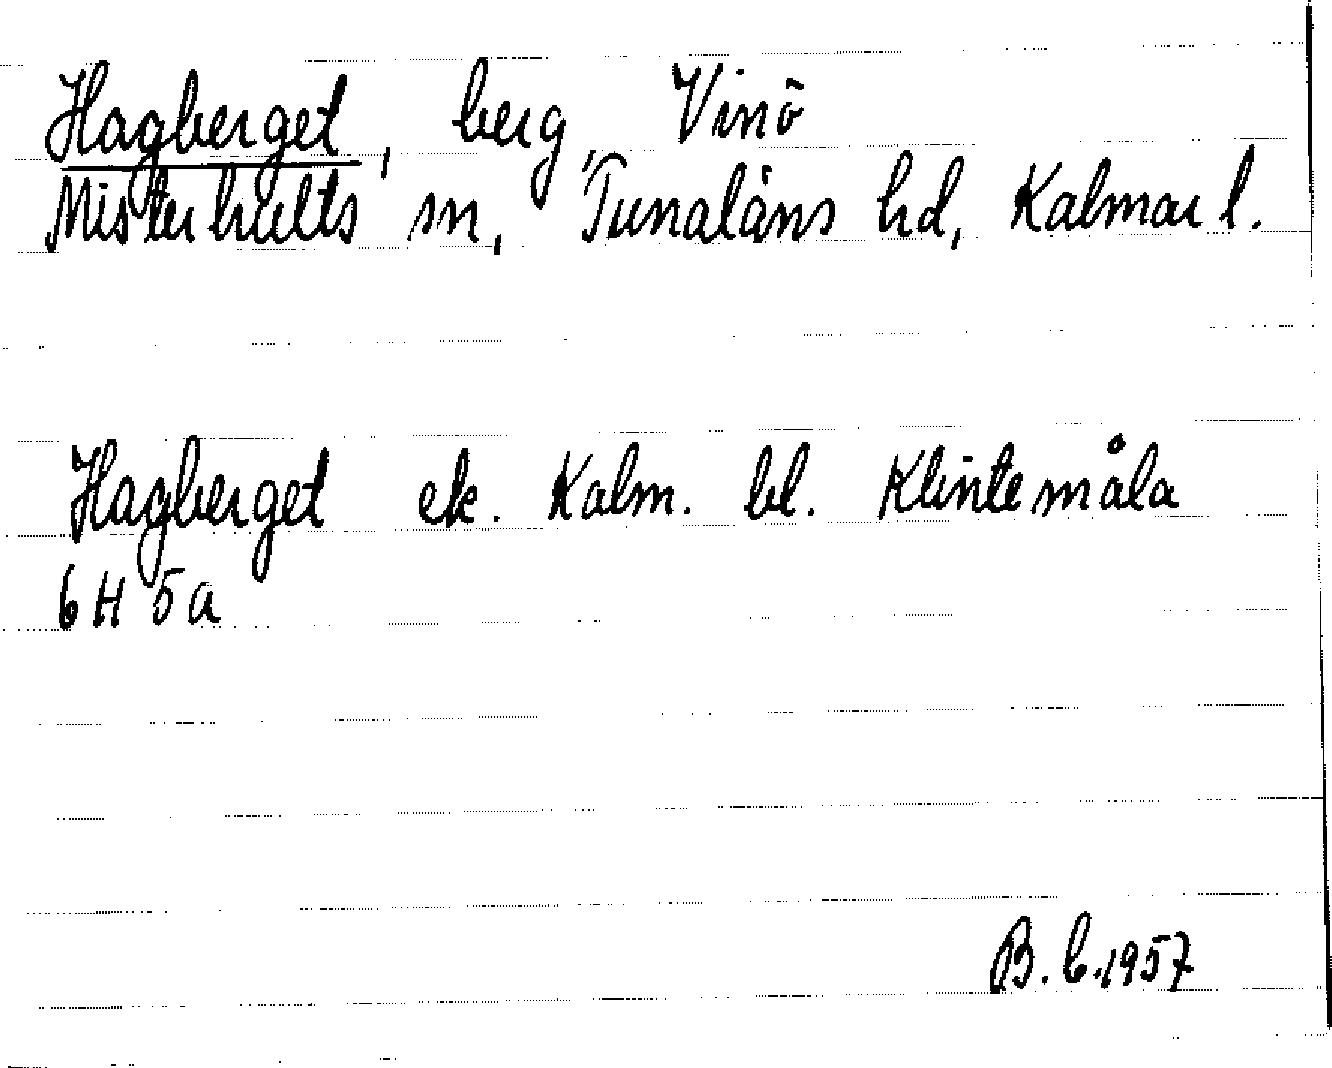 Hagberget, berg, Vinö
Misterhults sn, Tunaläns hd, Kalmar l.
Hagberget ek. Kalm. bl. Klintemåla
6 H 5 a
B. C. 1957